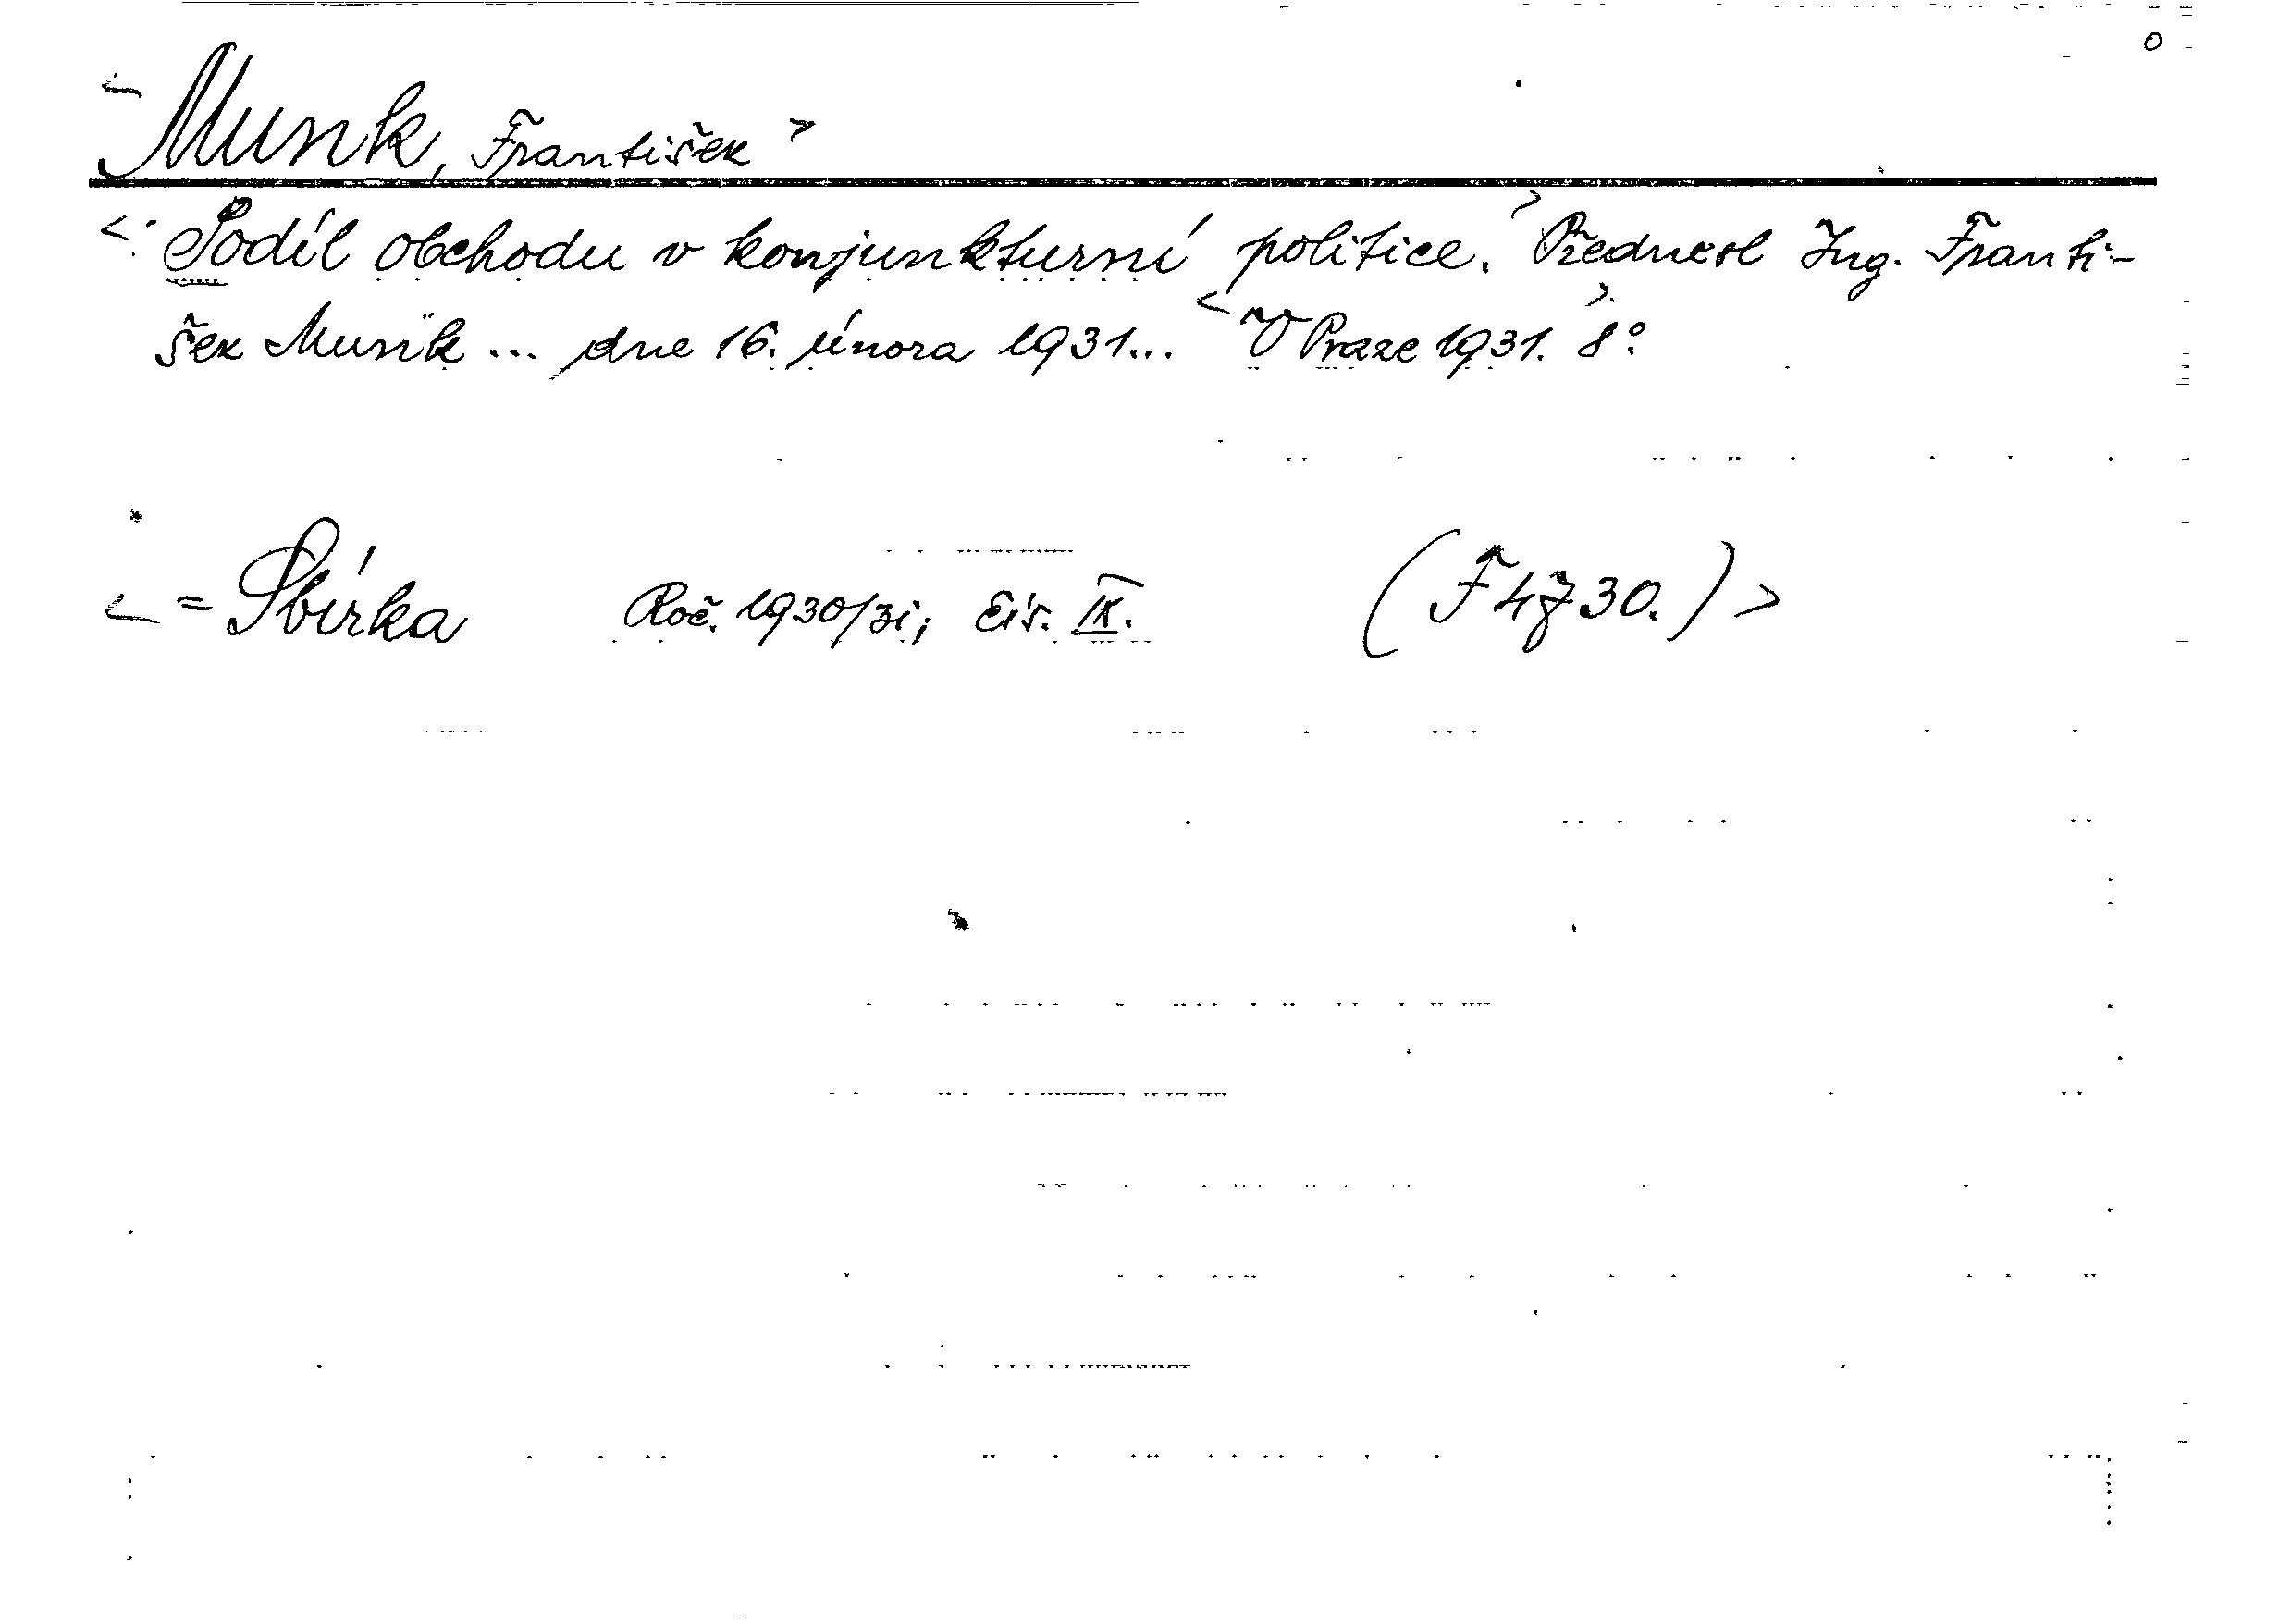 o
Munk, František >
<: Podíl obchodu v konjunkturní politice. > Přednesl Ing. Franti-
šek Munk ... dne 16. února 1931... < V Praze 1931. > 8°.
< = Sbírka Roč. 1930/31; Čís. IX. (F 4730.) >